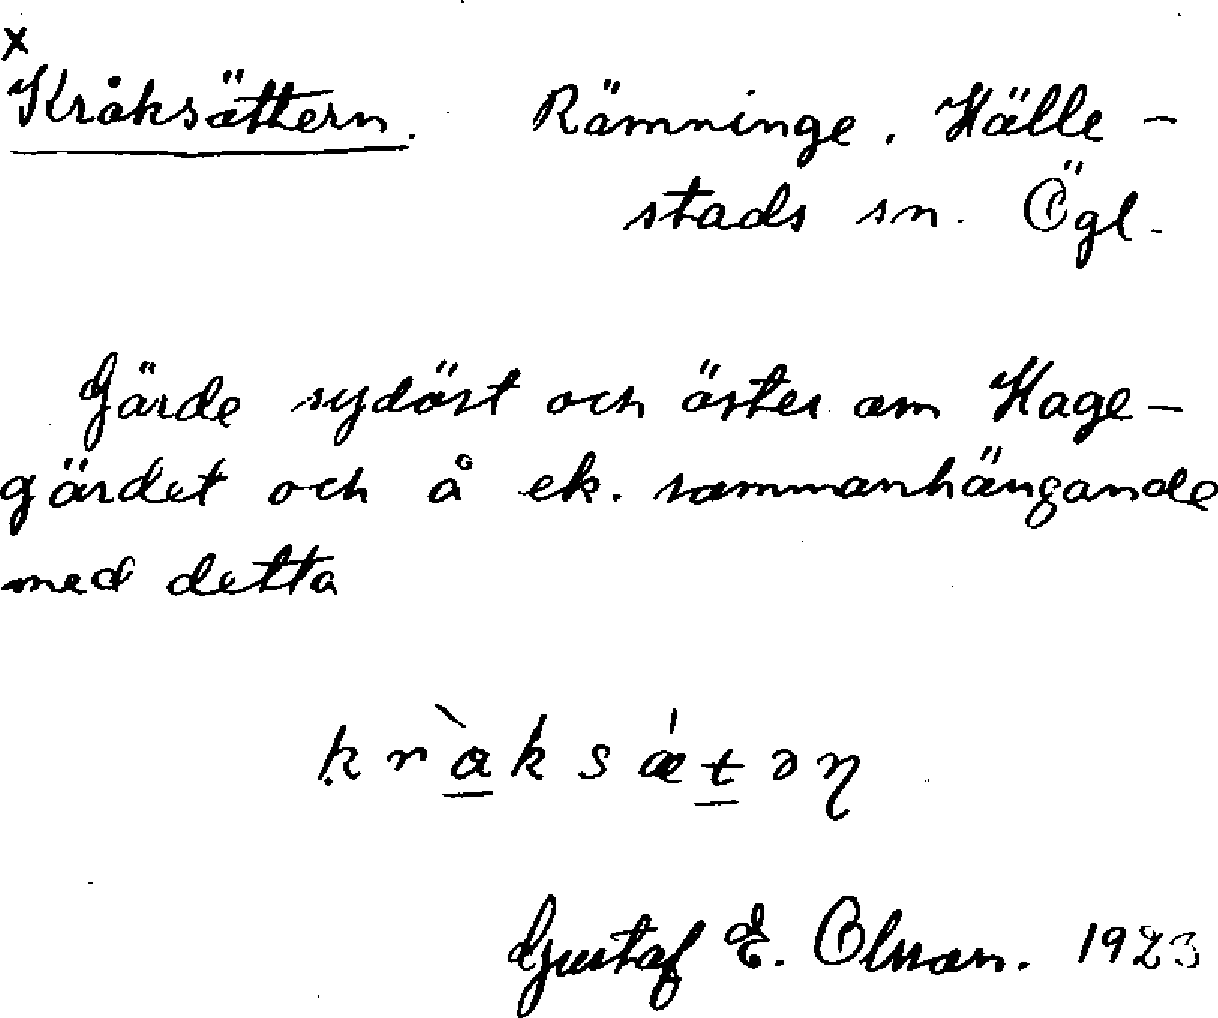 x
Kråksättern. Rämninge. Hälle-
stads sn. Ögl.
Gärde sydöst och öster om Hage-
gärdet och å ek. sammanhängande
med detta
kr̀aksǽtəɳ
Gustaf E. Olsson. 1923